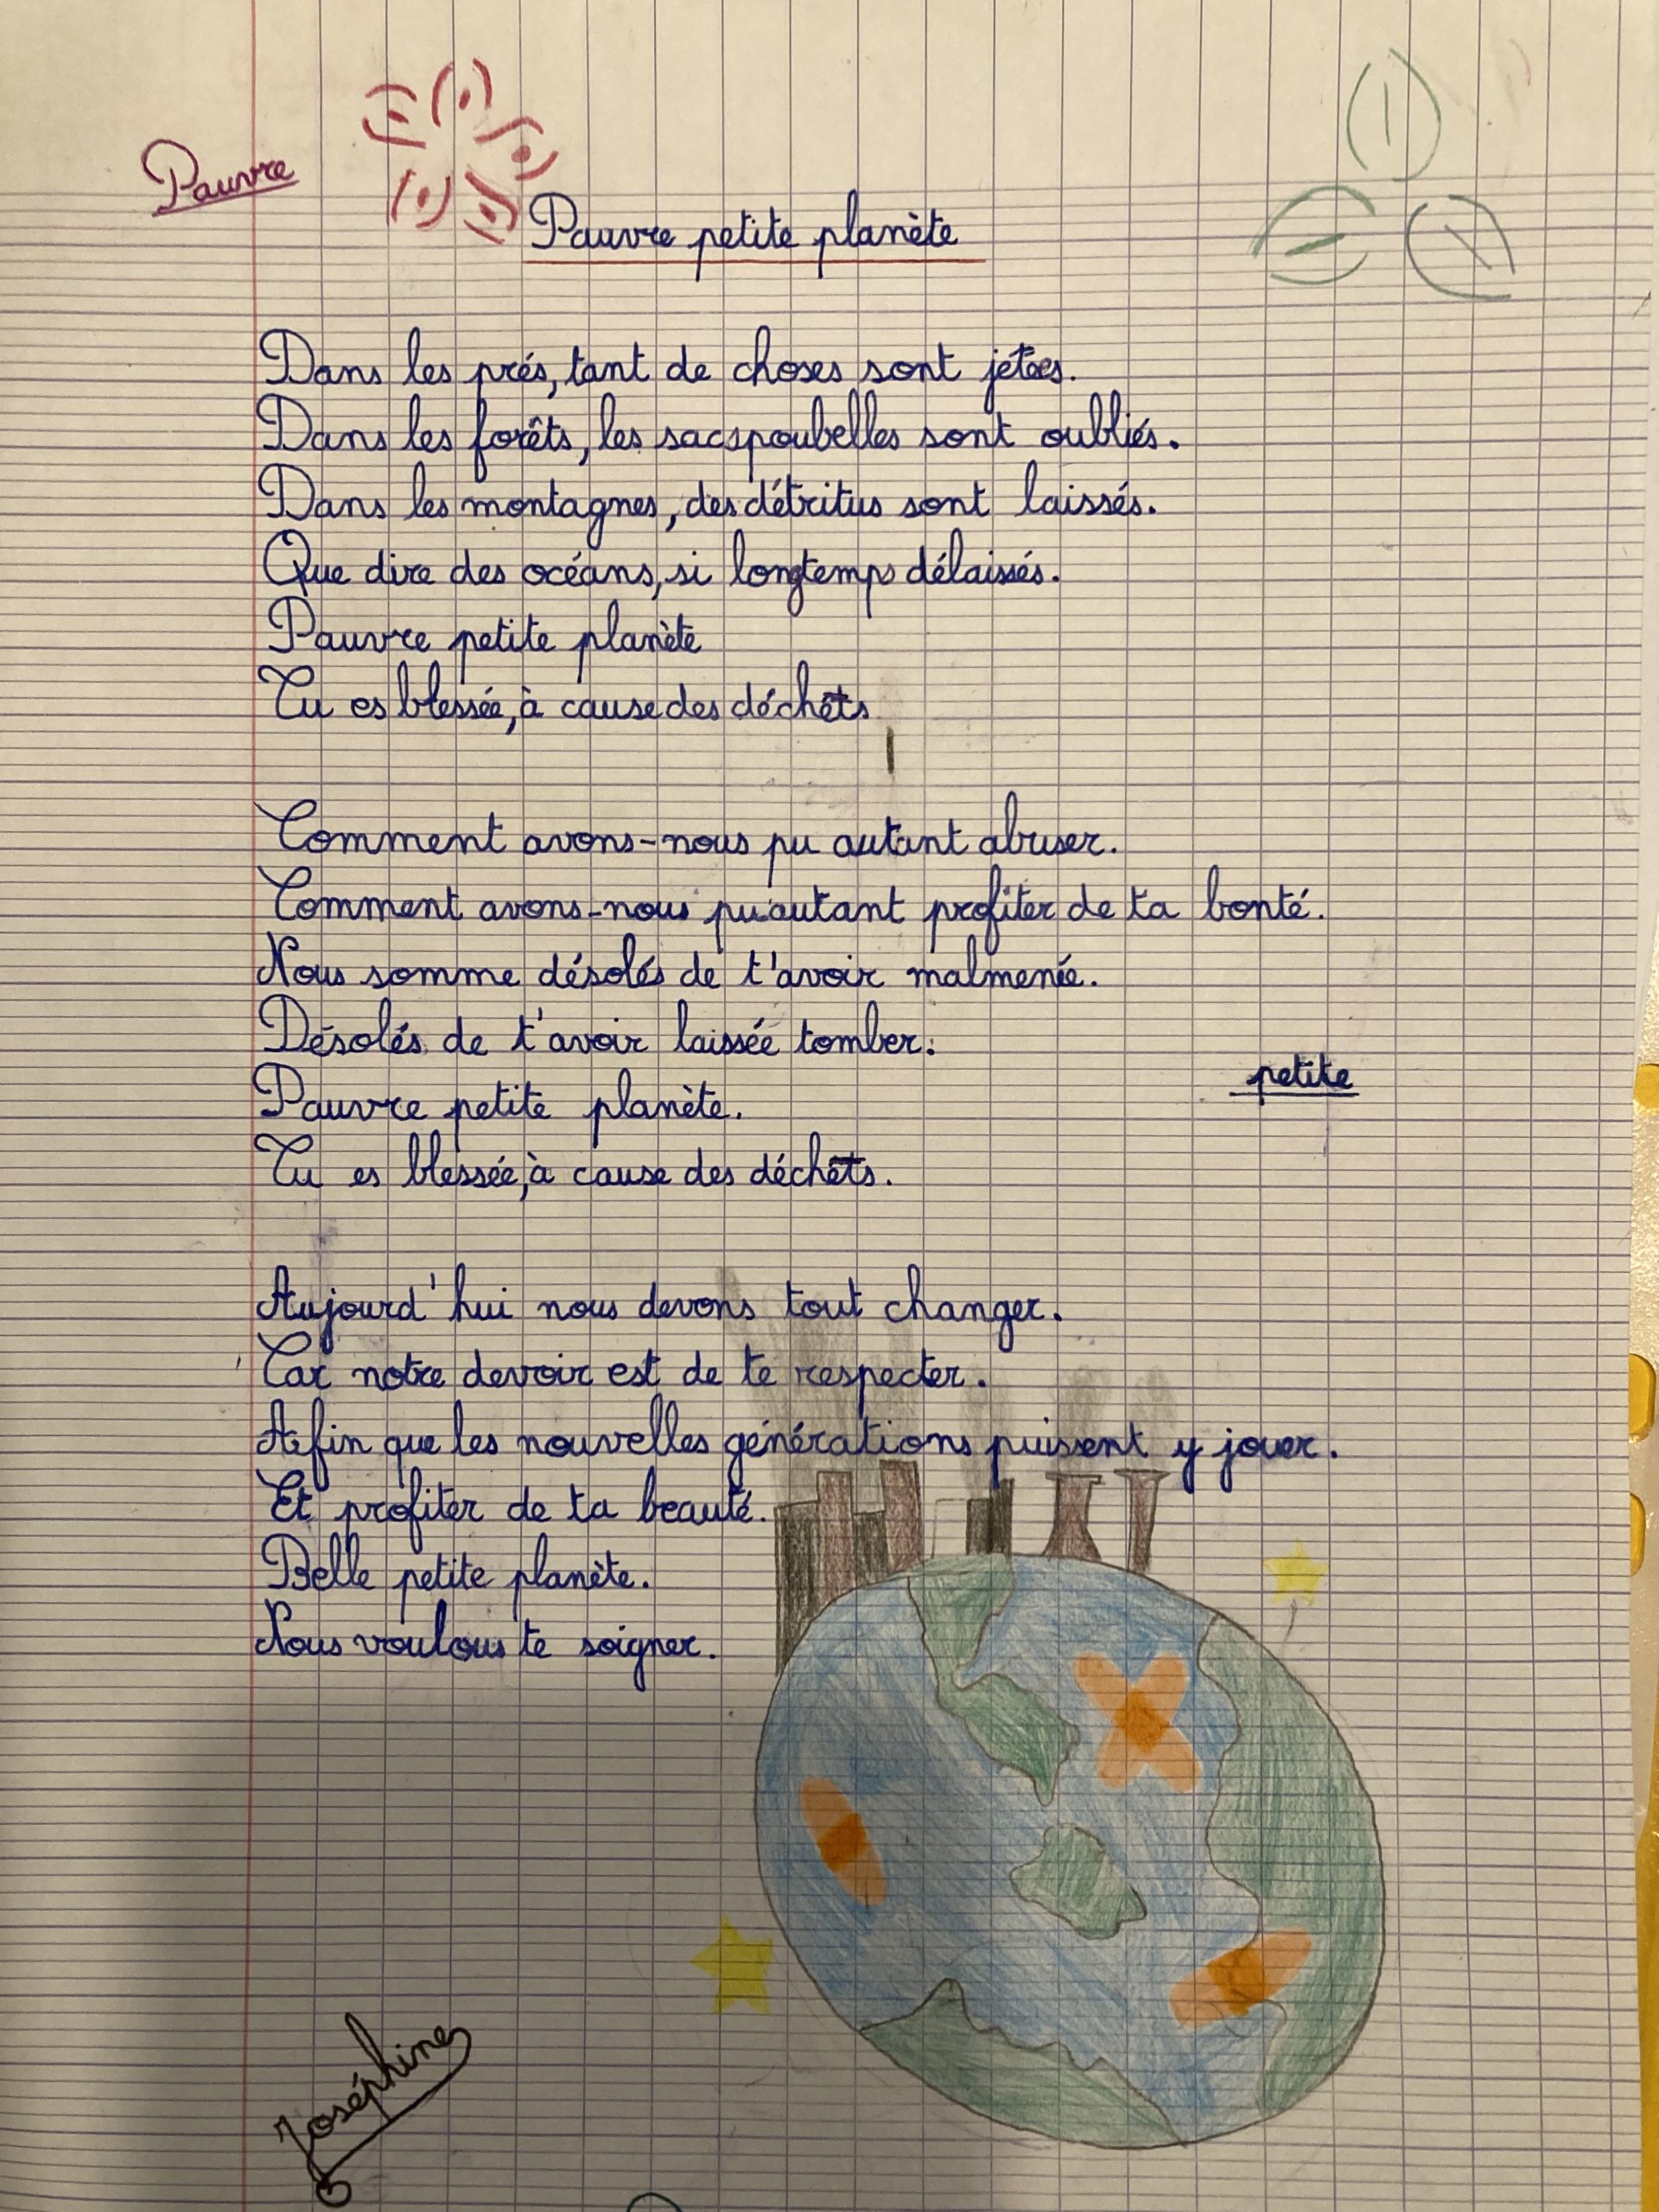 Pauvre
Pauvre petite planète
Dans les prés, tant de choses sont jétées.
Dans les forêts, les sacs poubelles sont oubliés.
Dans les montagnes, des détritus sont laissés.
Que dire des océans, si longtemps délaissés.
Pauvre petite planète
Tu es blessée, à cause des déchêts
Comment avons-nous pu autant abuser.
Comment avons-nous pu autant profiter de ta bonté.
Nous somme désolés de t'avoir malmenée.
Désolés de t'avoir laissée tomber.
petite
Pauvre petite planète.
Tu es blessée, à cause des déchêts.
Aujourd'hui nous devons tout changer.
Car notre devoir est de te respecter.
Afin que les nouvelles générations puissent y jouer.
Et profiter de ta beauté.
Belle petite planète.
Nous voulous te soigner.
Joséphine